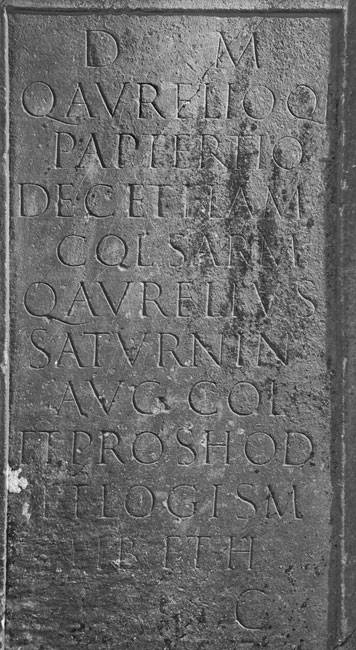 D M
QAVRELIOQ
PAPTERTIO
DECETFLAM
COLSARM
QAVRELIVS
SATVRNIN
AVG COL
PROSHOD
ETLOGISM
LIB ETH
C